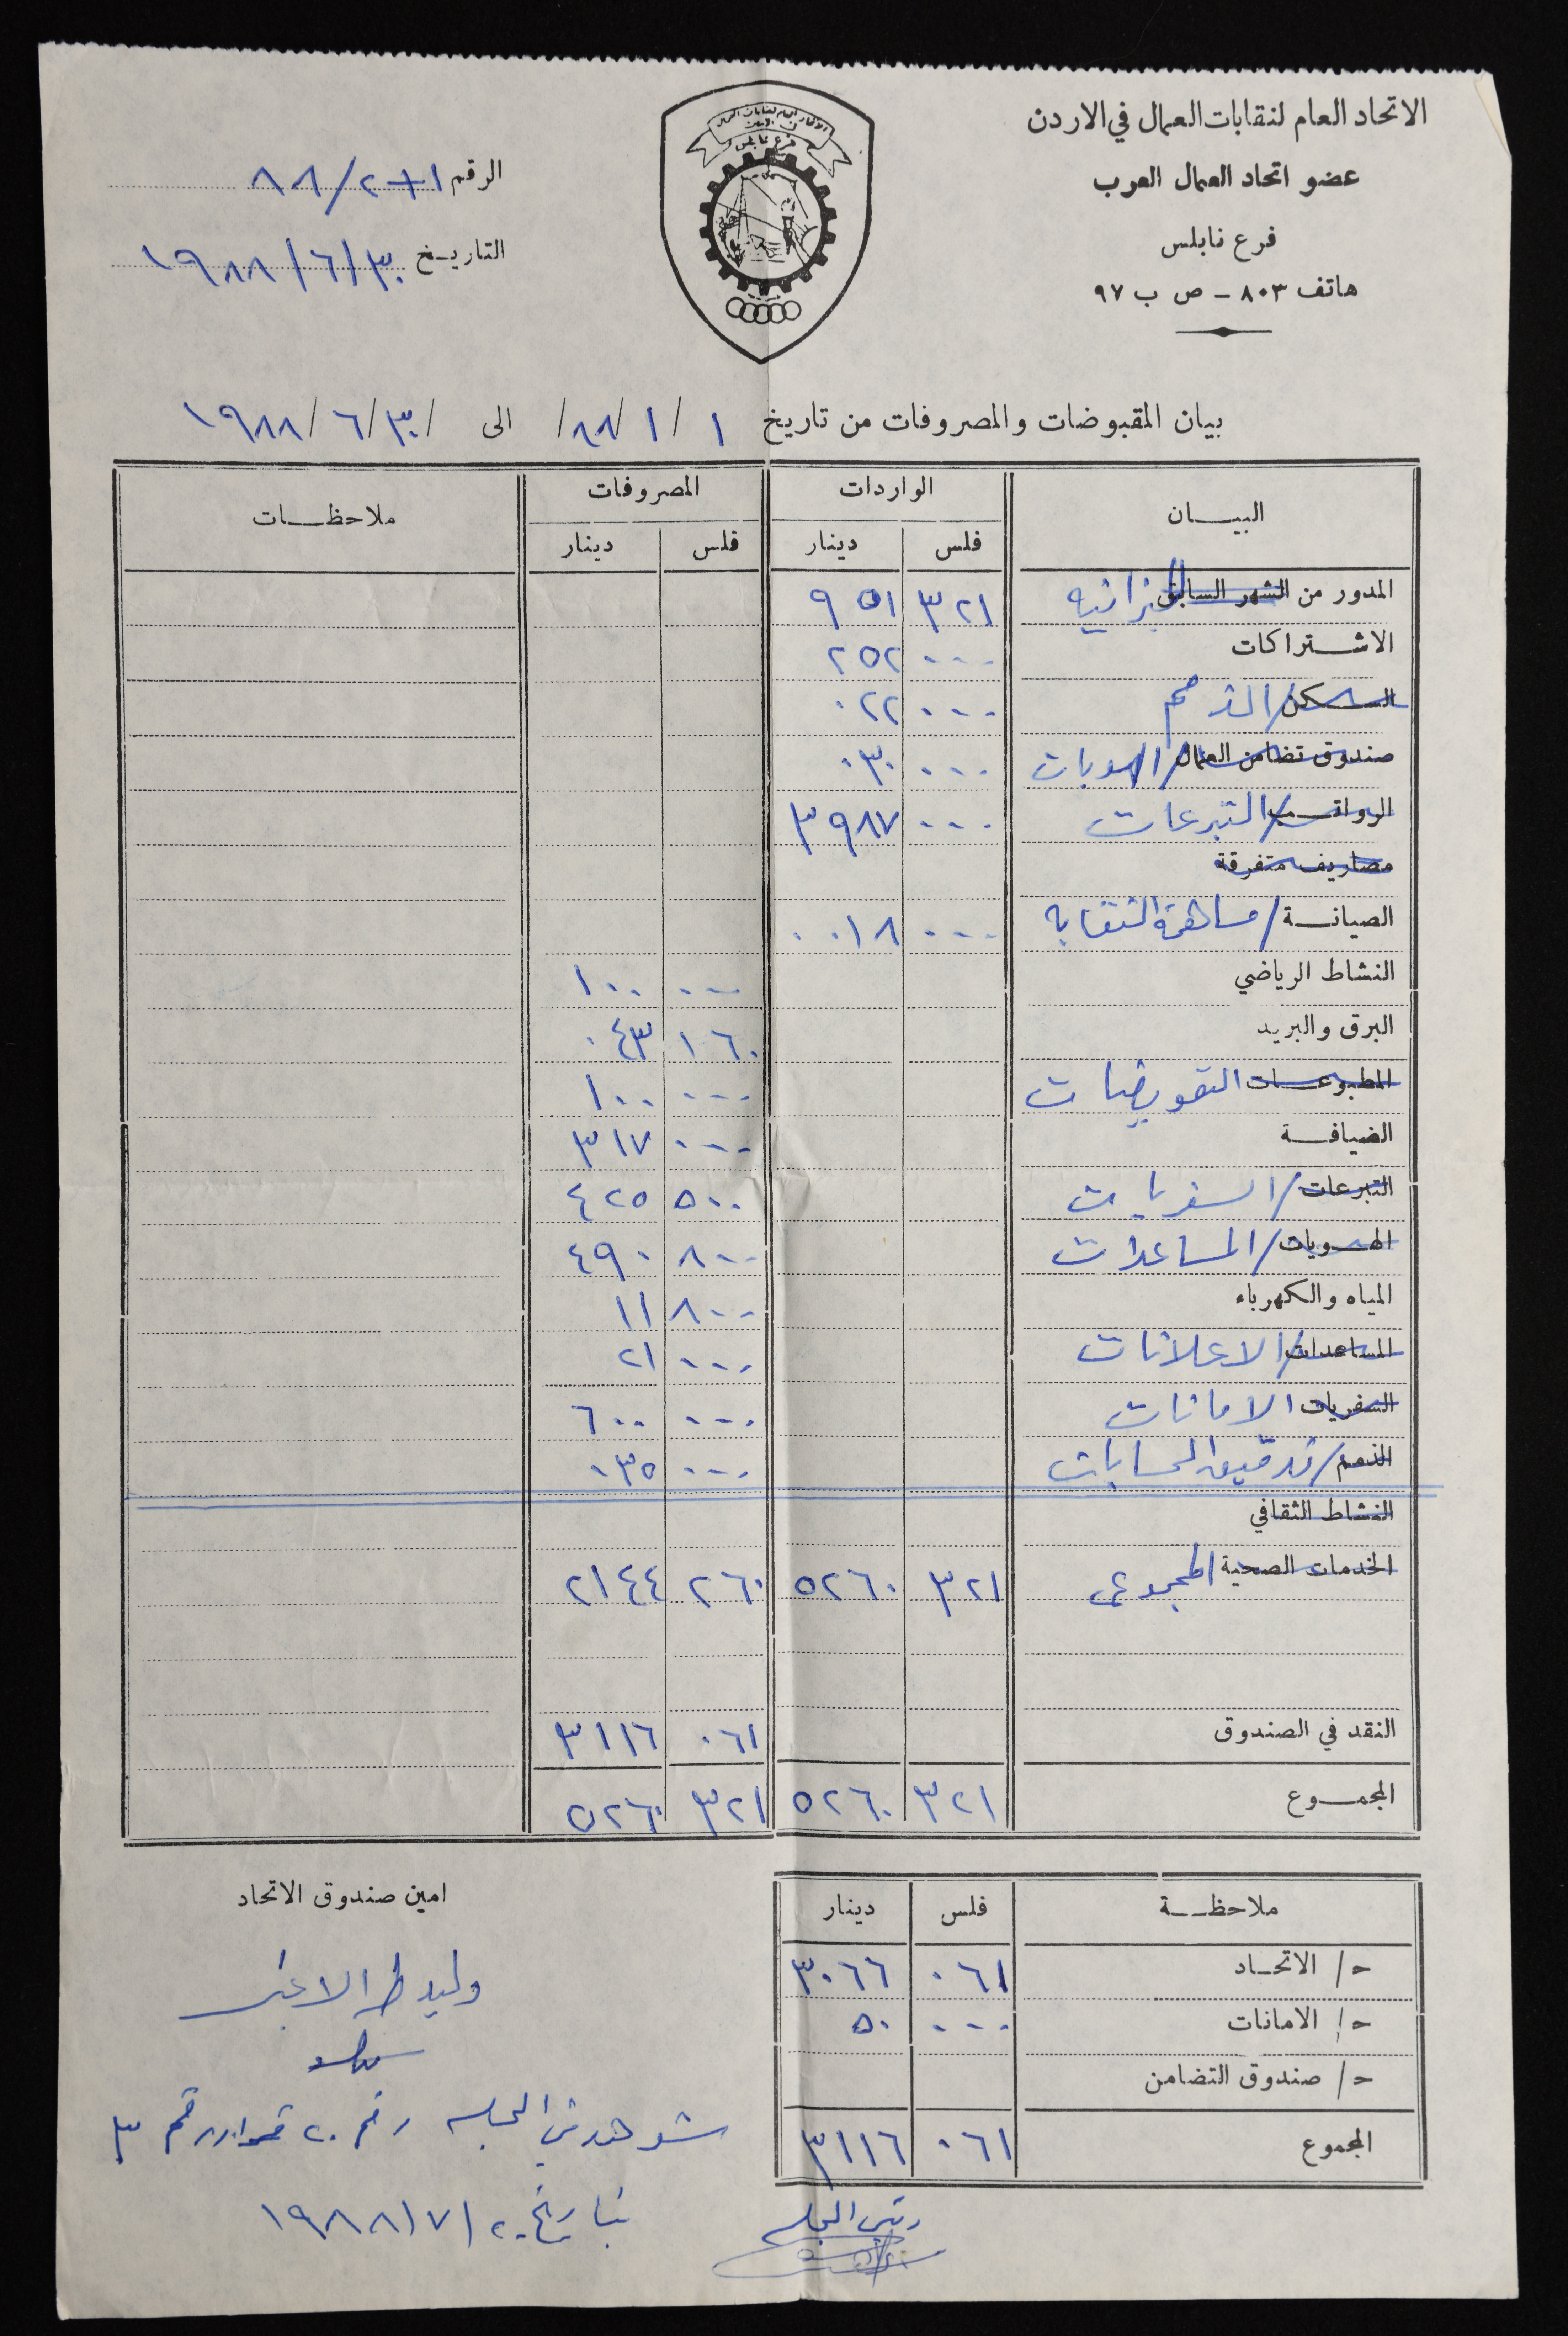 الاتحاد العام لنقابات العمال في الاردن
عضو اتحاد العمال العرب
فرع نابلس
هاتف ٨٠٣ - ص ب ٩٧
الرقم ٨٨/٢٠١
التاريخ ١٩٨٨/٦/٣٠
الاتحاد العام لنقابات العمال
في الاردن
فرع نابلس
بيان المقبوضات والمصروفات من تاريخ ١/١/٨٨/ الى ١٩٨٨/٦/٣٠/
البيان الواردات المصروفات ملاحظات
فلس دينار فلس دينار
المدور من الشهر السابق الميزانيه ٣٢١ ٩٥١
الاشتراكات ٠٠٠ ٢٥٢
السكن/الذمم ٠٠٠ ٠٢٢
صندوق تضامن العمال/الهويات ٠٠٠ ٠٣٠
الرواتب/التبرعات ٠٠٠ ٣٩٨٧
مصاريف متفرقة
الصيانة/مساهمة النقابه ٠٠٠ ٠٠١٨
النشاط الرياضي ٠٠٠ ١٠٠
البرق والبريد ١٦٠ ٠٤٣
المطبوعات التعويضات ٠٠٠ ١٠٠
الضيافة ٠٠٠ ٣١٧
التبرعات/السفريات ٥٠٠ ٤٢٥
الهويات/المساعدات ٨٠٠ ٤٩٠
المياه والكهرباء ٨٠٠ ١١
المساعدات/الاعلانات ٠٠٠ ٢١
السفريات الامانات ٠٠٠ ٦٠٠
الذمم/تدقيق الحسابات ٠٠٠ ٠٣٥
النشاط الثقافي
الخدمات الصحية المجموع ٣٢١ ٥٢٦٠ ٢٦٠ ٢١٤٤
النقد في الصندوق ٠٦١ ٣١١٦
المجموع ٣٢١ ٥٢٦٠ ٣٢١ ٥٢٦٠
ملاحظة فلس دينار
ح/ الاتحاد ٠٦١ ٣٠٦٦
ح/ الامانات ٠٠٠ ٥٠
ح/ صندوق التضامن
المجموع ٠٦١ ٣١١٦
امين صندوق الاتحاد
وليد
شوهد في الجلسه رقم ٢٠ قرار رقم ٣
بتاريخ ١٩٨٨/٧/٢٠
رئيس الجلسه